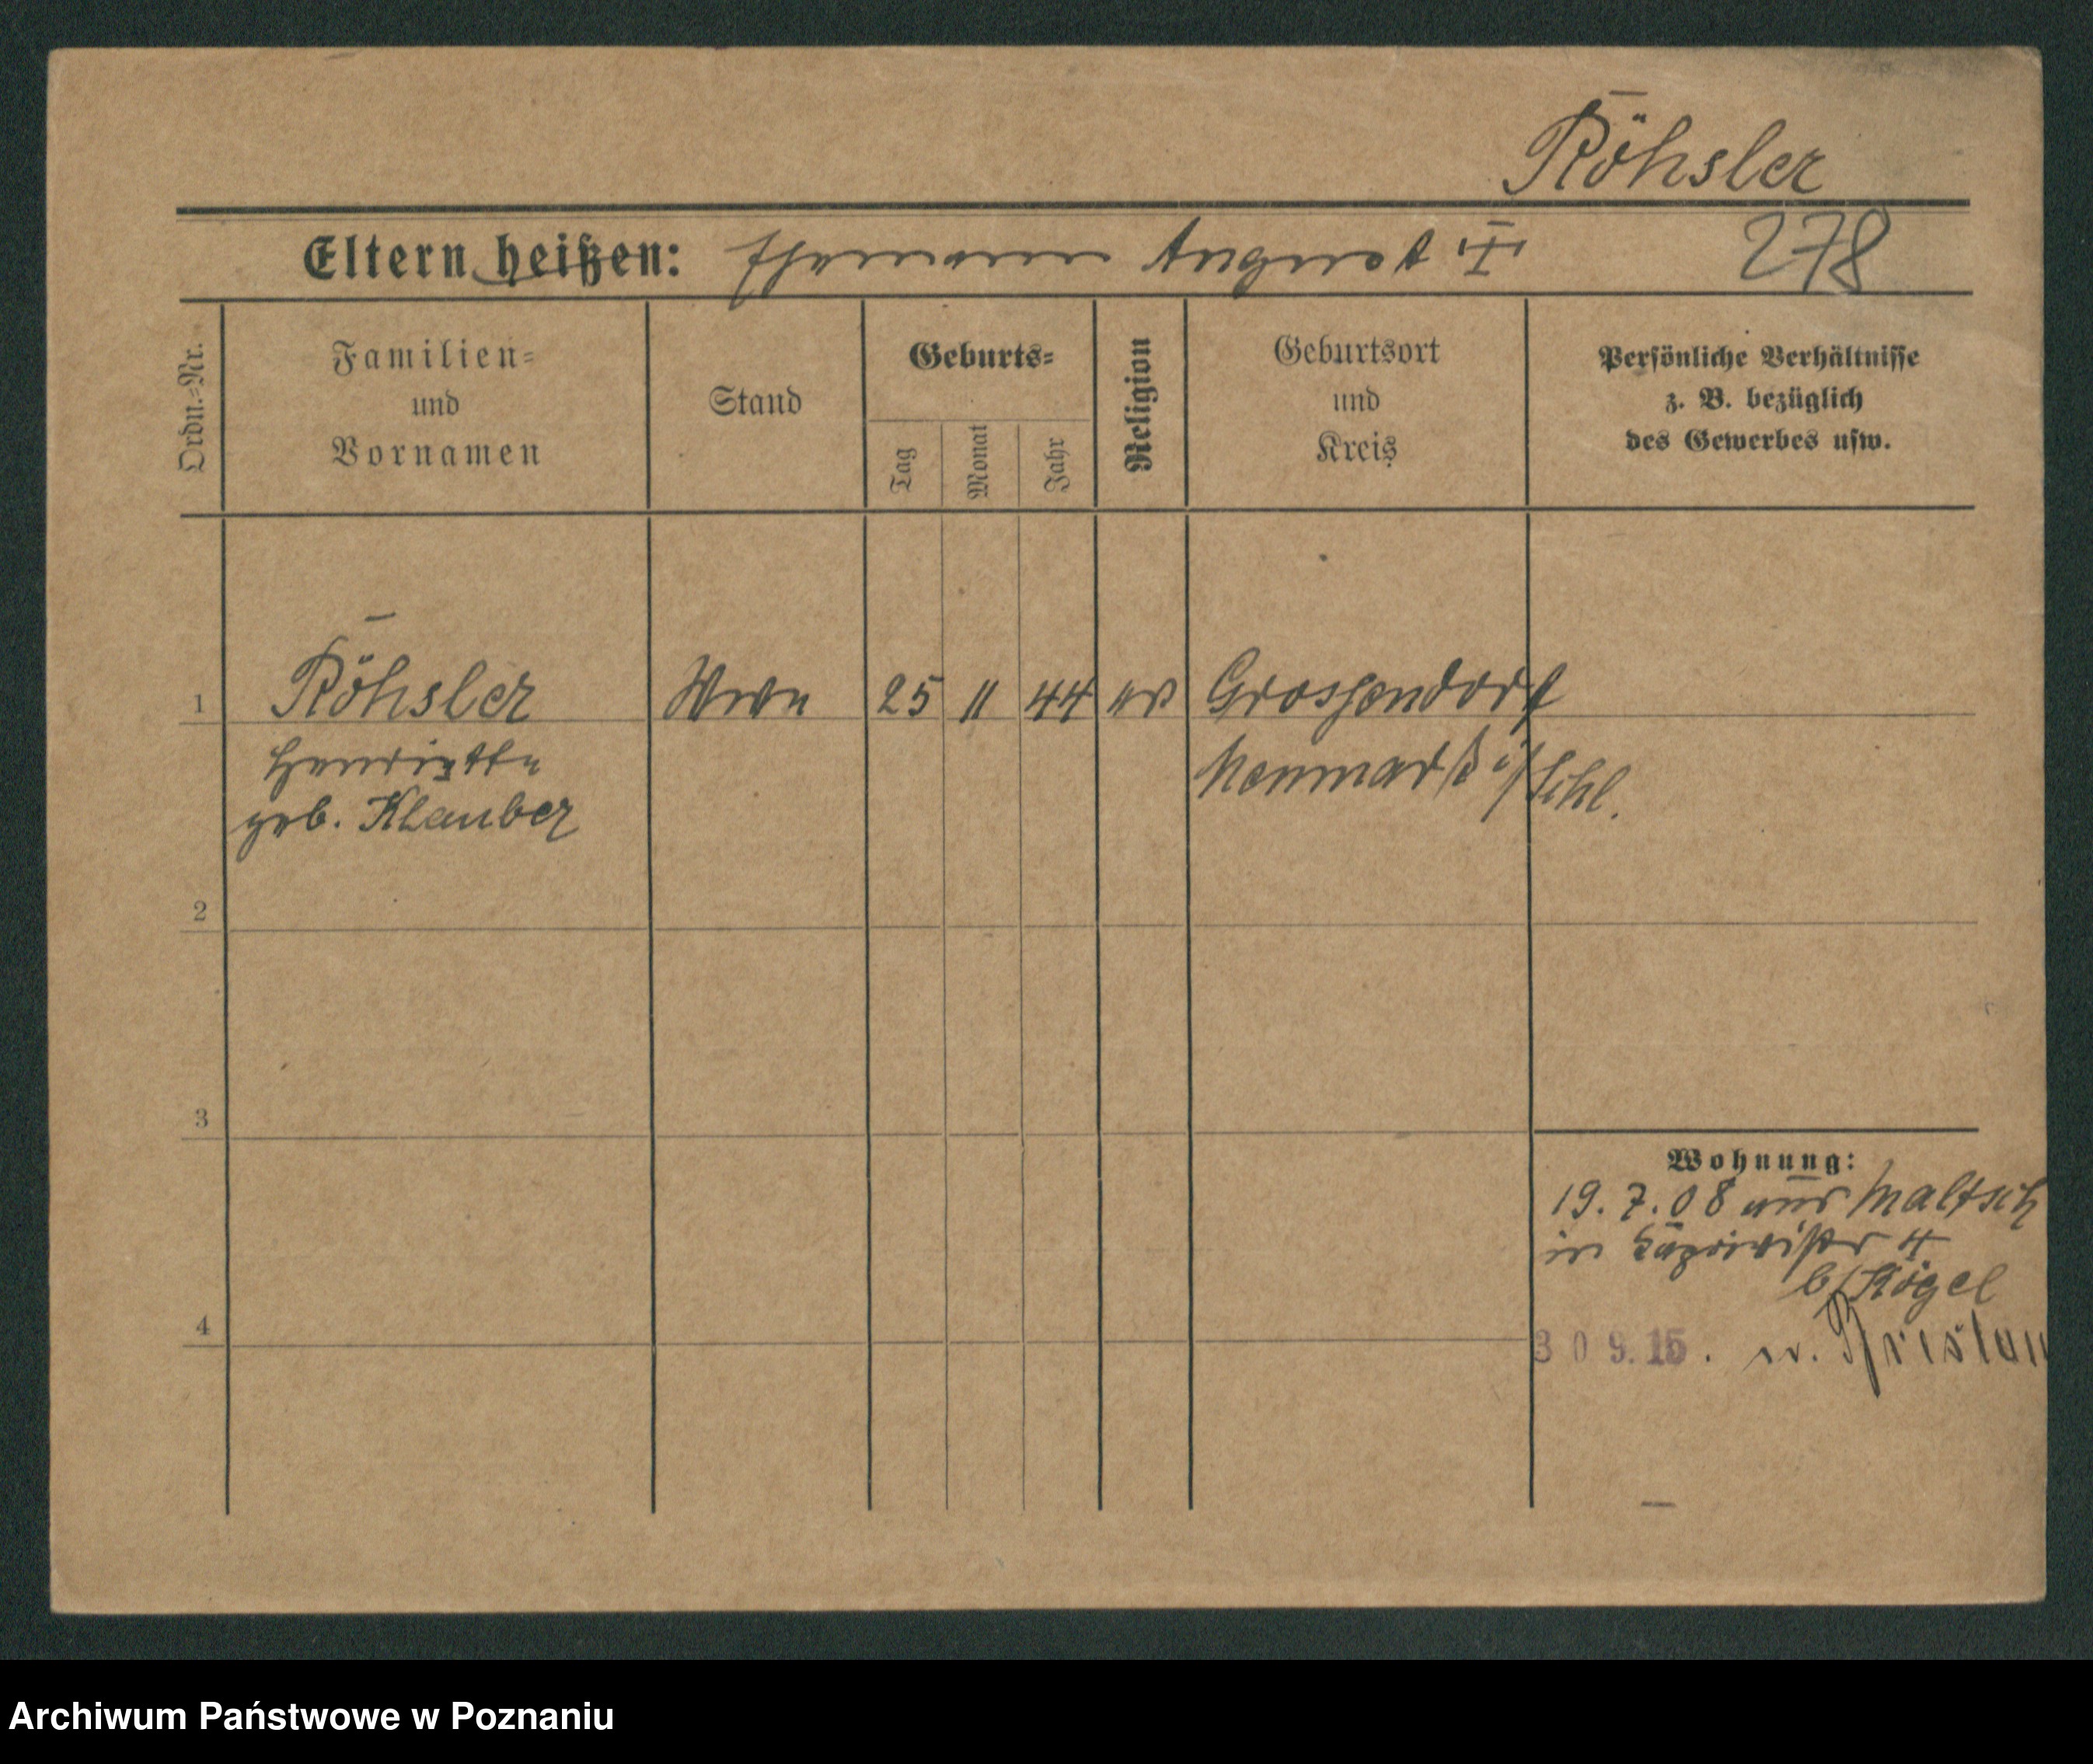 Röhsler
Eltern heißen: Ehemann August "I" 278
Ordn.=Nr.
Familien=
und
Vornamen
Stand
Geburts=
Tag
Monat
Jahr
Religion
Geburtsort
und
Kreis
Persönliche Verhältnisse
z. B. bezüglich
des Gewerbes usw.
1 Röhsler Wwe 25 11 44 ev Groszendorf
Henriette Neumarkt i/Schl.
geb. Klauber
2
3
4
Wohnung:
19. 7. 08 aus Maltsch
in 4
b/ Kögel
30 9. 15. n. Breslau
Archiwum Państwowe w Poznaniu